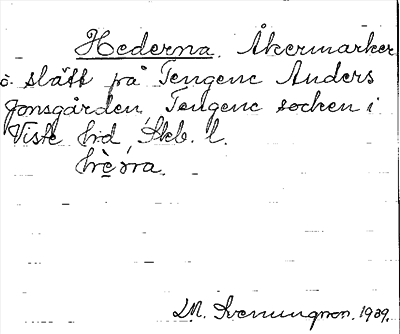 Hederna. Åkermarker
o. slätt på Tengene Anders
Jonsgården, Tengene socken i
Viste hd, Skb. l.
M. Svenungson. 1939.